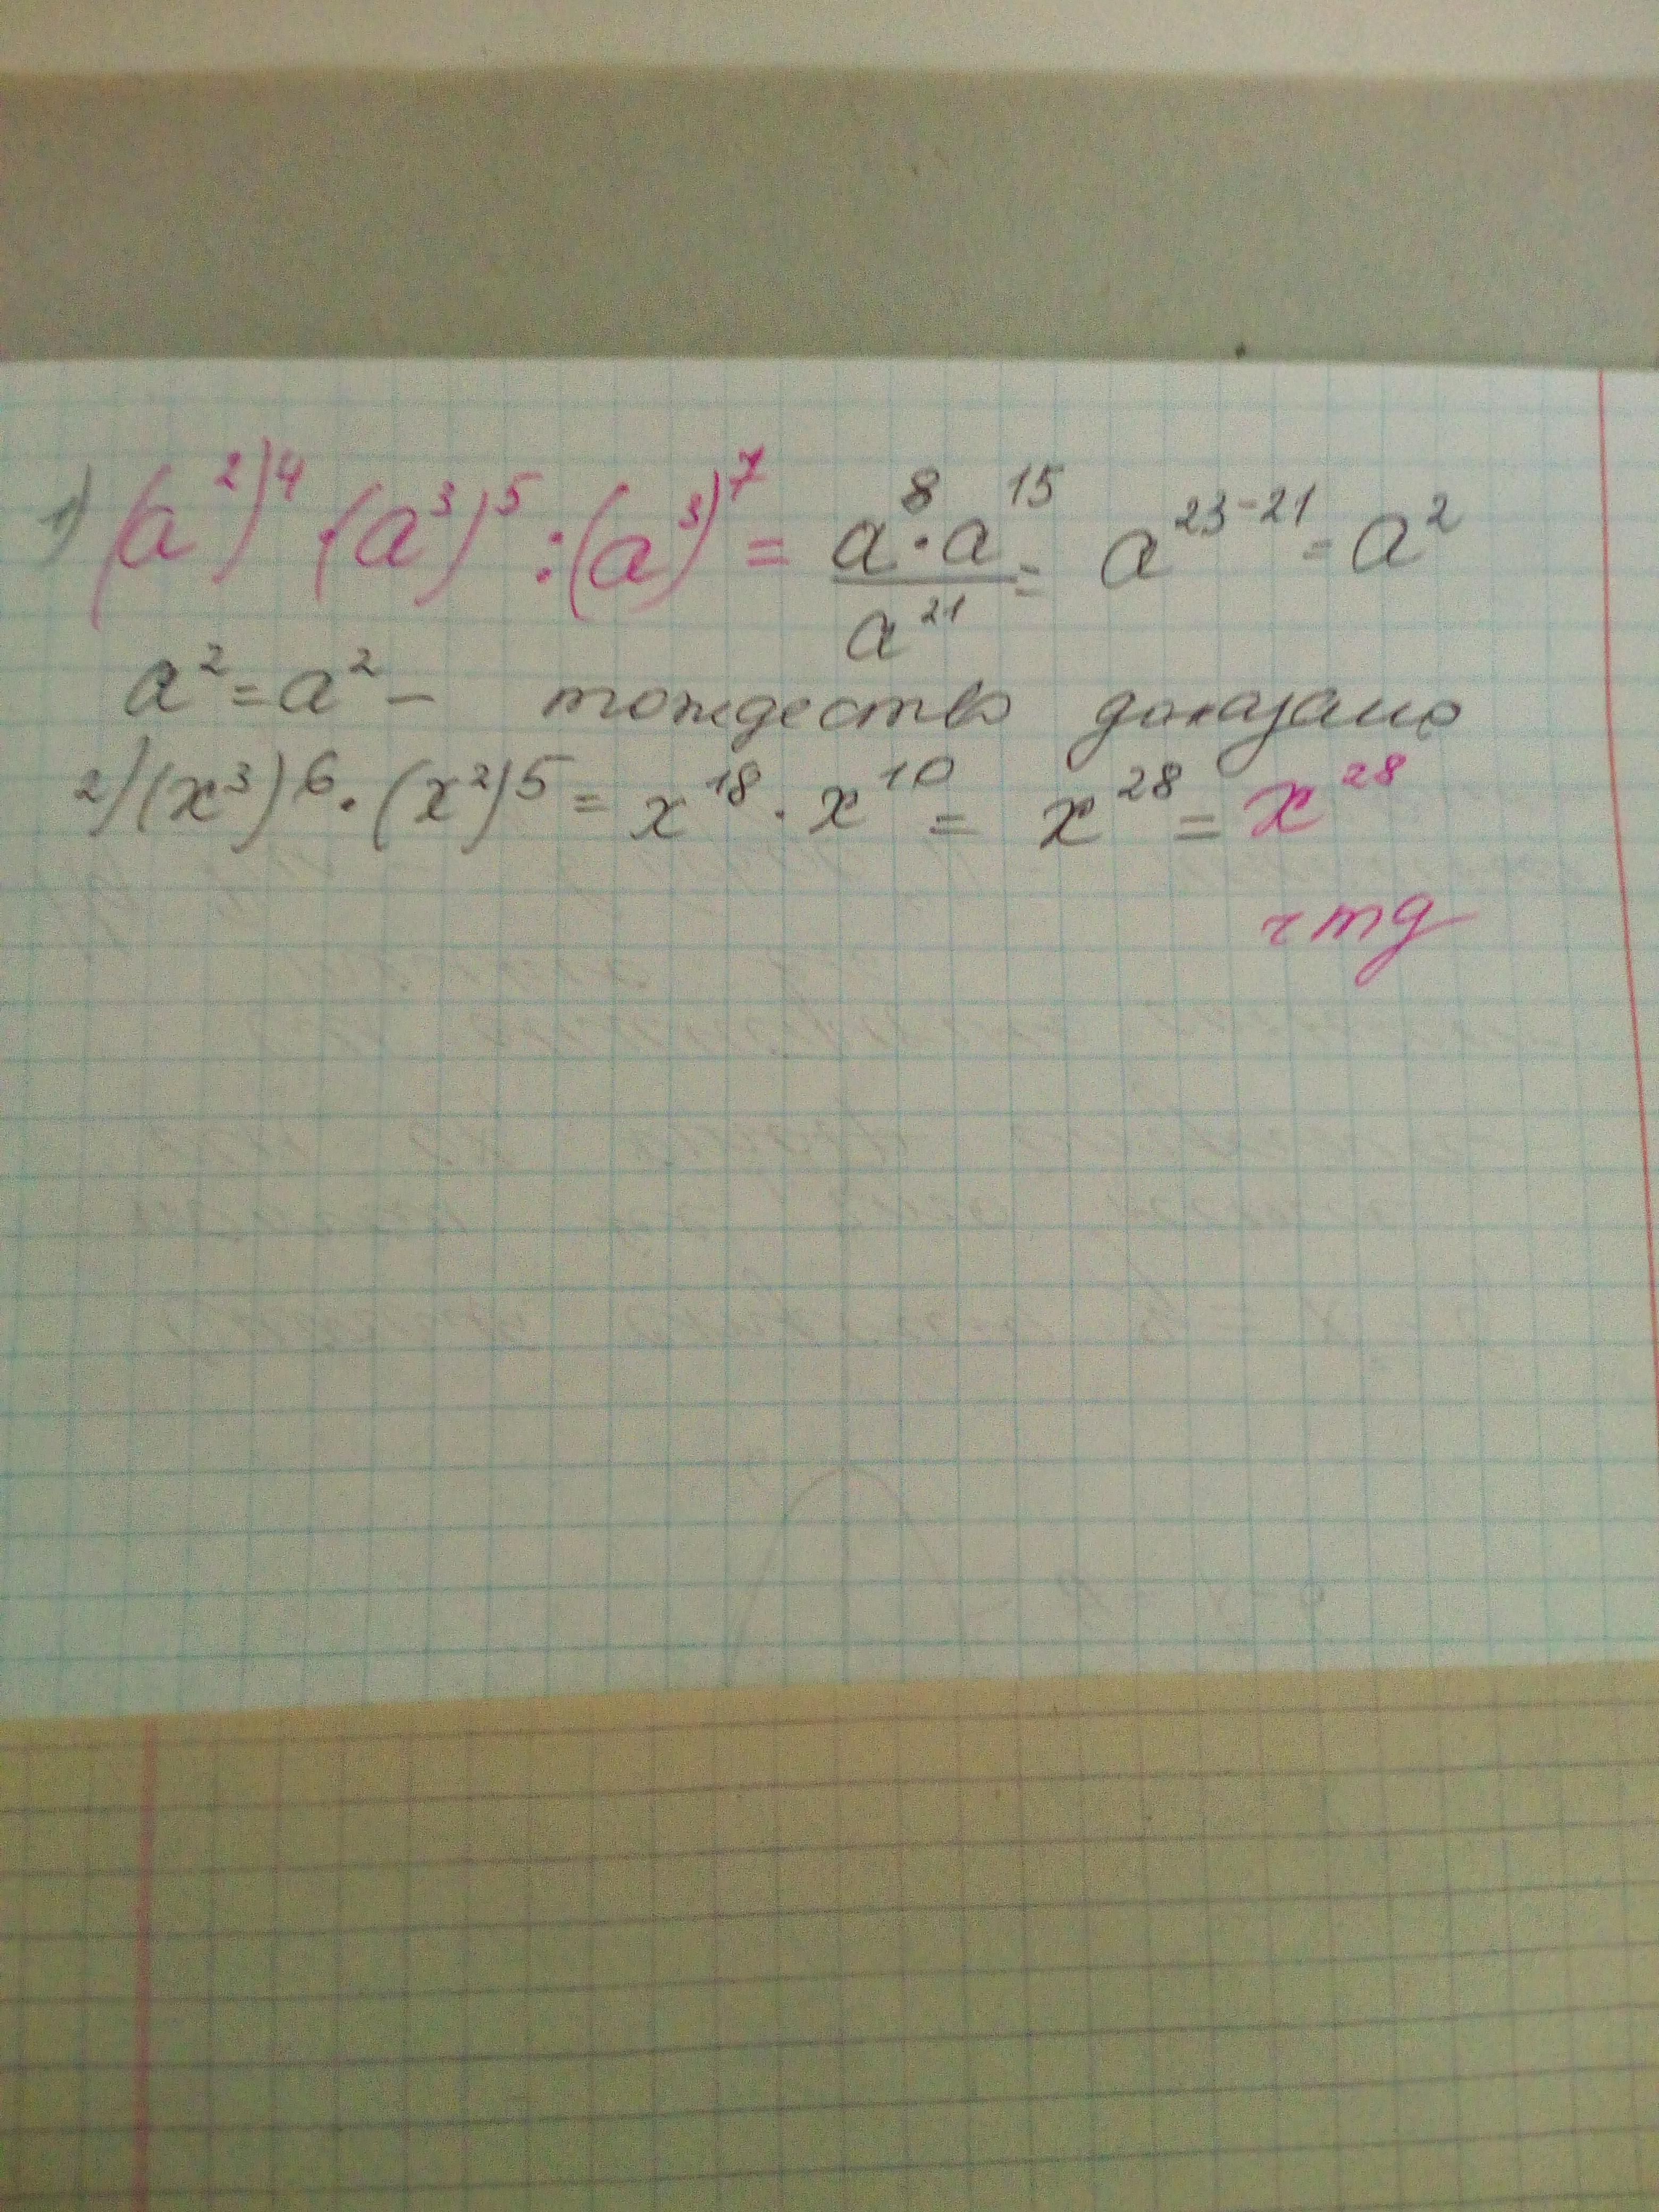 1) (a²)⁴ · (a³)⁵ : (a³)⁷ = a⁸ · a¹⁵ / a²¹ = a²³⁻²¹ = a²
a² = a² – тождество доказано
2) (x³)⁶ · (x²)⁵ = x¹⁸ · x¹⁰ = x²⁸ = x²⁸
чтд